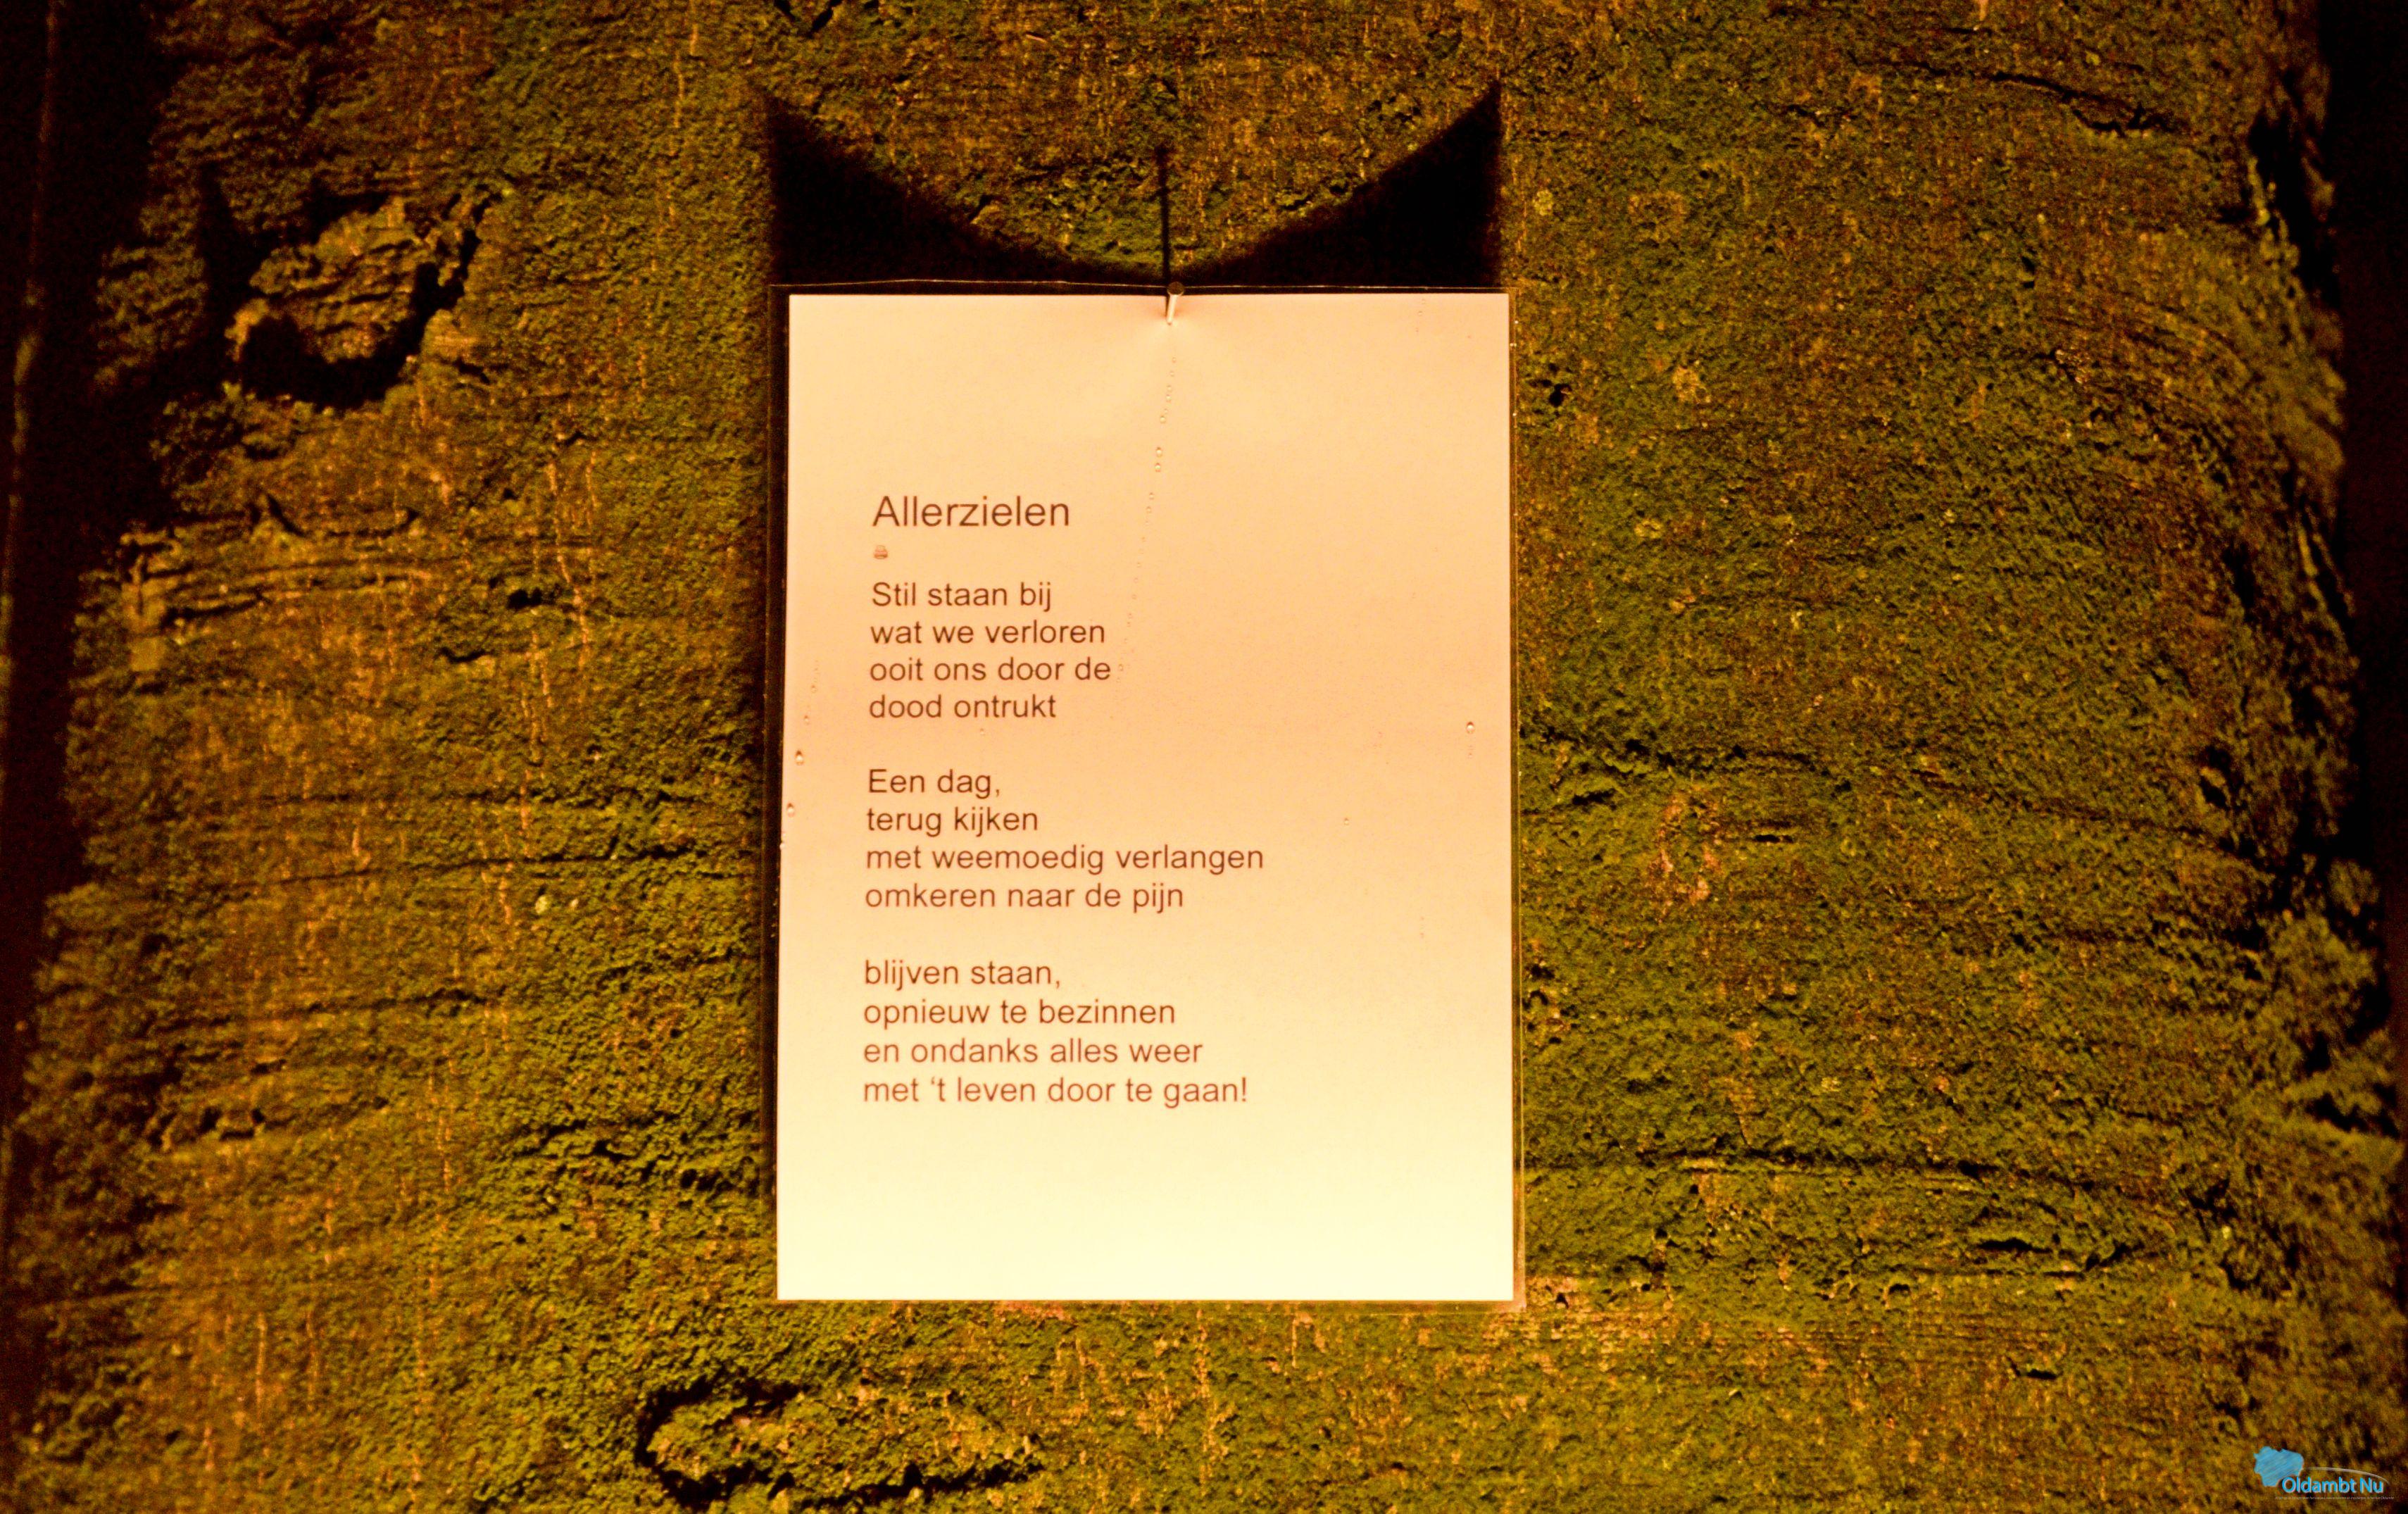 Allerzielen
Stil staan bij
wat we verloren
ooit ons door de
dood ontrukt
Een dag,
terug kijken
met weemoedig verlangen
omkeren naar de pijn
blijven staan,
opnieuw te bezinnen
en ondanks alles weer
met ‘t leven door te gaan!
Oldambt Nu